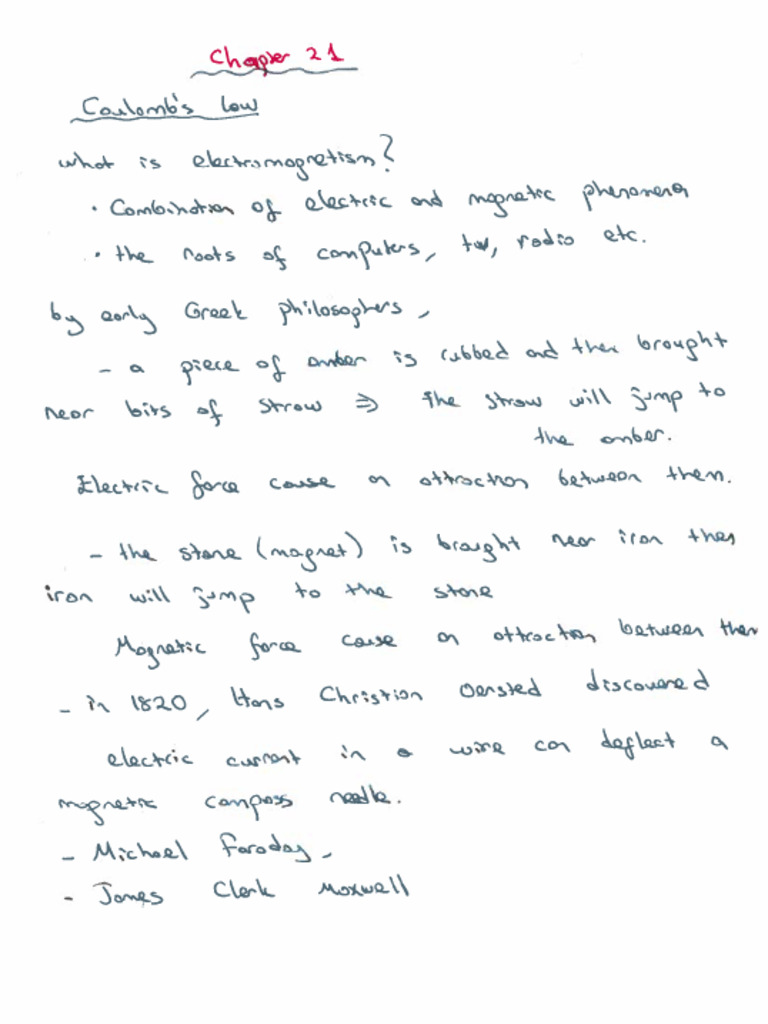 Chapter 21
Coulomb's Law
what is electromagnetism?
• Combination of electric and magnetic phenomena
• the roots of computers, tv, radio etc.
by early Greek philosophers,
- a piece of amber is rubbed and then brought
near bits of straw ⇒ the straw will jump to
the amber.
Electric force cause an attraction between them.
- the stone (magnet) is brought near iron then
iron will jump to the stone
Magnetic force cause an attraction between them
- in 1820, Hans Christian Oersted discovered
electric current in a wire can deflect a
magnetic compass needle.
- Michael Faraday,
- James Clerk Maxwell